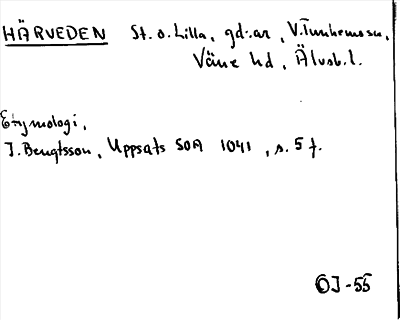 HÄRVEDEN St. o. Lilla, gd:ar, V. Tunhems sn,
Väne hd, Älvsb. l.
Etymologi,
J. Bengtsson, Uppsats SOA 1041, s. 5 f.
OJ-55